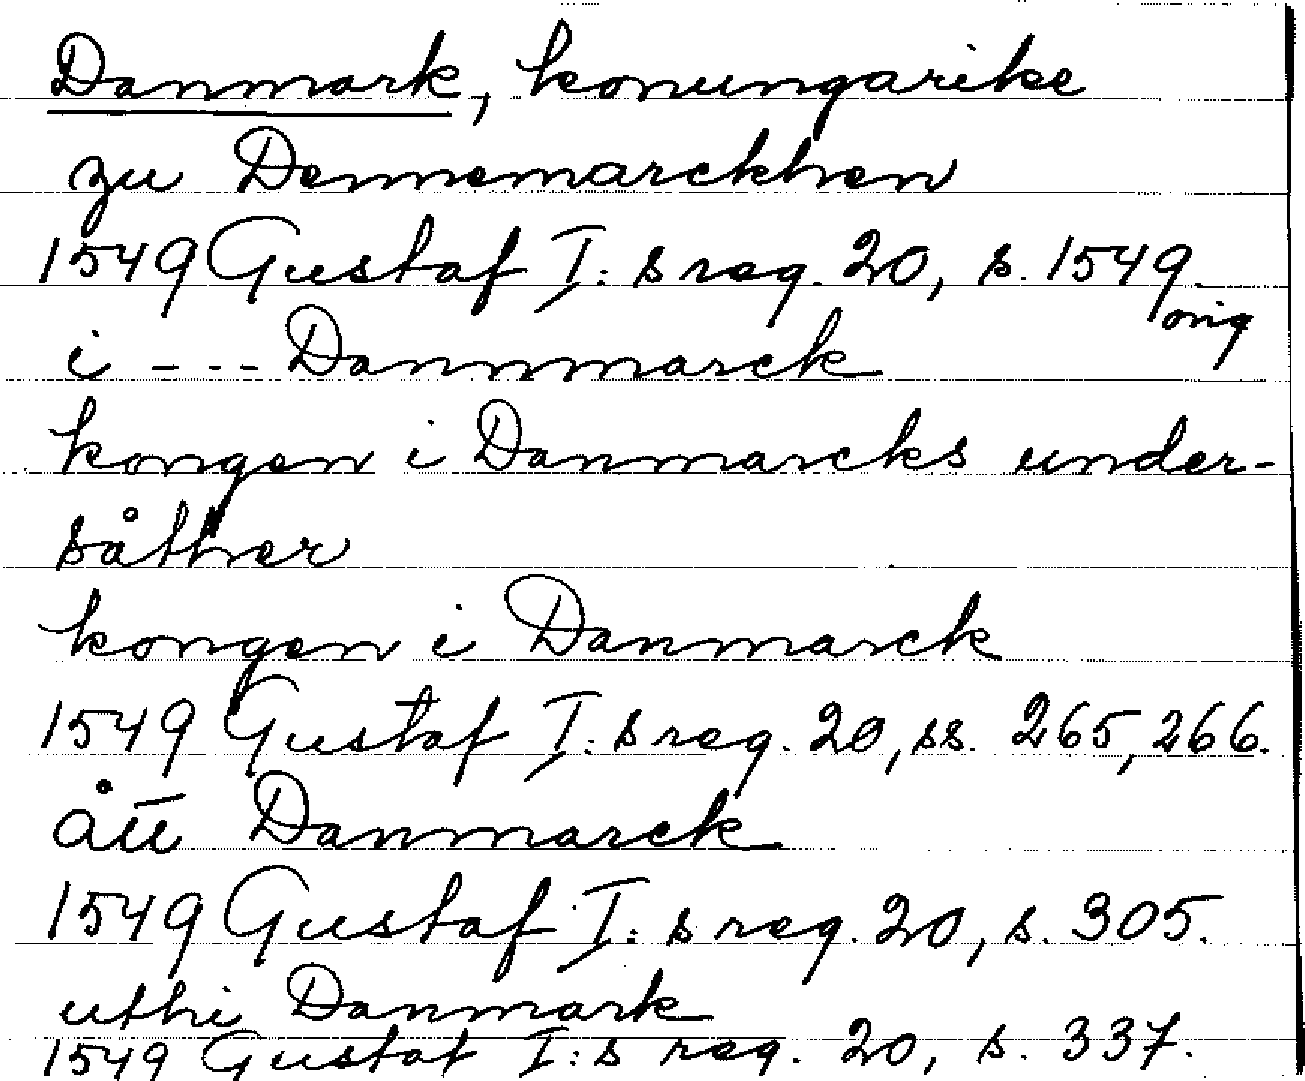 Danmark, konungarike
zu Dennemarckhen
1549 Gustaf I:s reg. 20, s. 1549.
orig
i - - - Dannmarck
kongen i Danmarcks under-
såther
kongen i Danmarck
1549 Gustaf I:s reg. 20, ss. 265, 266.
ått Danmarck
1549 Gustaf I:s reg. 20, s. 305.
uthi Danmark
1549 Gustaf I:s reg. 20, s. 337.